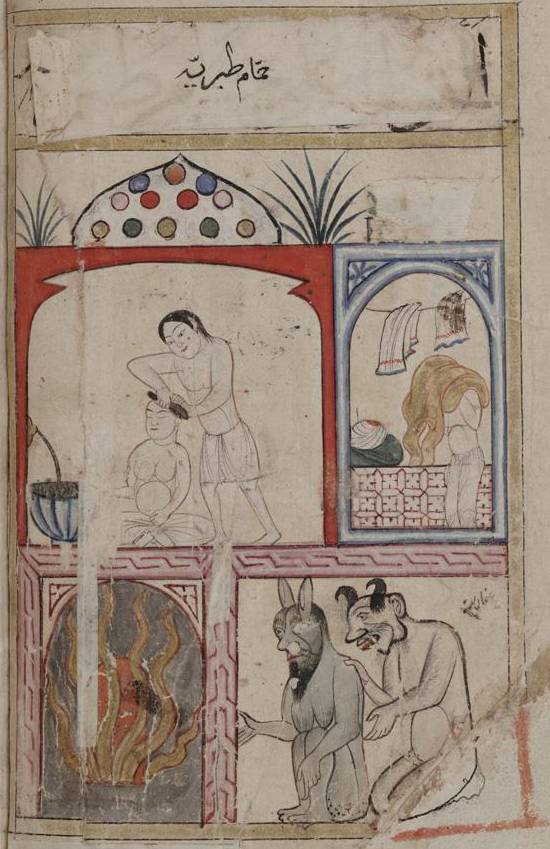 حمّام طبريّة